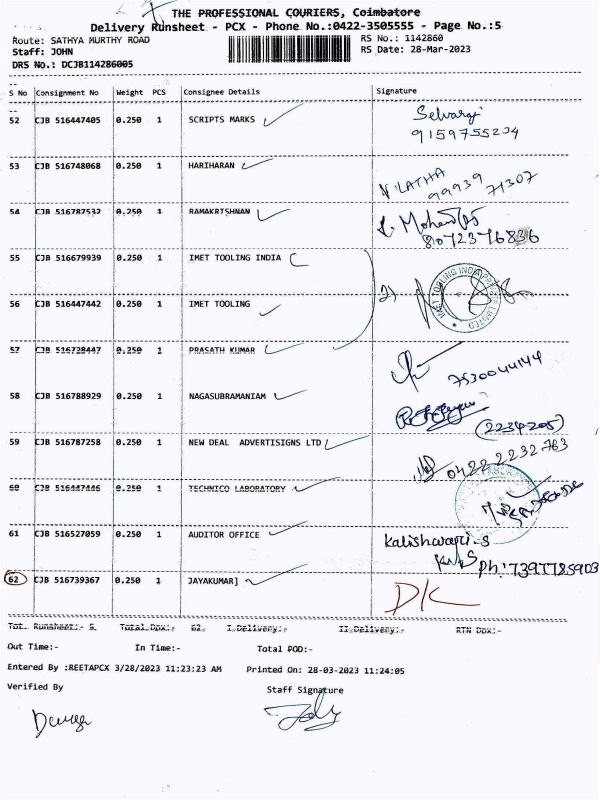 THE PROFESSIONAL COURIERS, Coimbatore
Delivery Runsheet - PCX - Phone No.:0422-3505555 - Page No.:5
Route: SATHYA MURTHY ROAD RS No.: 1142860
Staff: JOHN RS Date: 28-Mar-2023
DRS No.: DCJB114286005
S No Consignment No Weight PCS Consignee Details Signature
52 CJB 516447405 0.250 1 SCRIPTS MARKS Selvaraj
9159755234
53 CJB 516748068 0.250 1 HARIHARAN
LATHA
99939 71307
54 CJB 516787532 0.250 1 RAMAKRISHNAN
8072376836
55 CJB 516679939 0.250 1 IMET TOOLING INDIA
56 CJB 516447442 0.250 1 IMET TOOLING 2)
IMET TOOLING INDIA PRIVATE LIMITED
57 CJB 516728447 0.250 1 PRASATH KUMAR
7530044144
58 CJB 516788929 0.250 1 NAGASUBRAMANIAM
(2234205)
59 CJB 516787258 0.250 1 NEW DEAL ADVERTISIGNS LTD
0422 2232 763
60 CJB 516447446 0.250 1 TECHNICO LABORATORY
61 CJB 516527059 0.250 1 AUDITOR OFFICE Kalishwari-S
Ph: 7397785903
62 CJB 516739367 0.250 1 JAYAKUMAR]
Tot. Runsheet:- 5 Total Dox:- 62 I Delivery:- II Delivery:- RTN Dox:-
Out Time:- In Time:- Total POD:-
Entered By :REETAPCX 3/28/2023 11:23:23 AM Printed On: 28-03-2023 11:24:05
Verified By Staff Signature